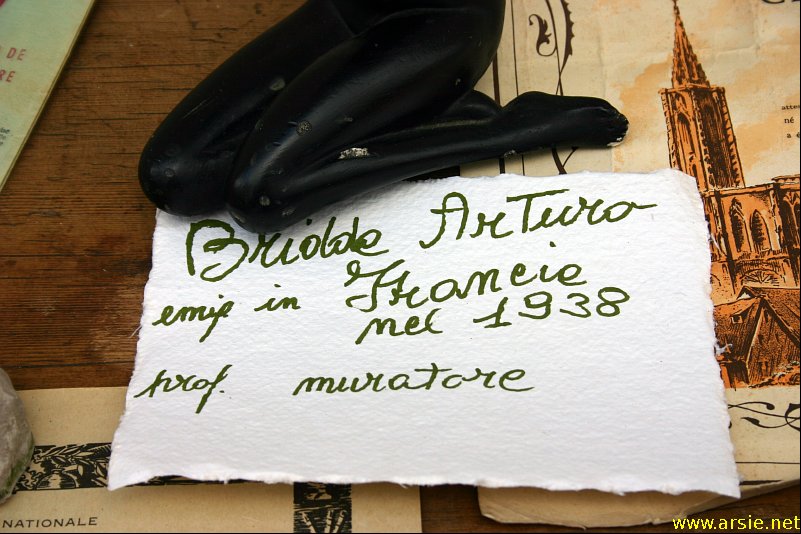 DE
RE
atte
né
a é
Briolde Arturo
emig in Francie
nel 1938
prof. muratore
NATIONALE
www.arsie.net